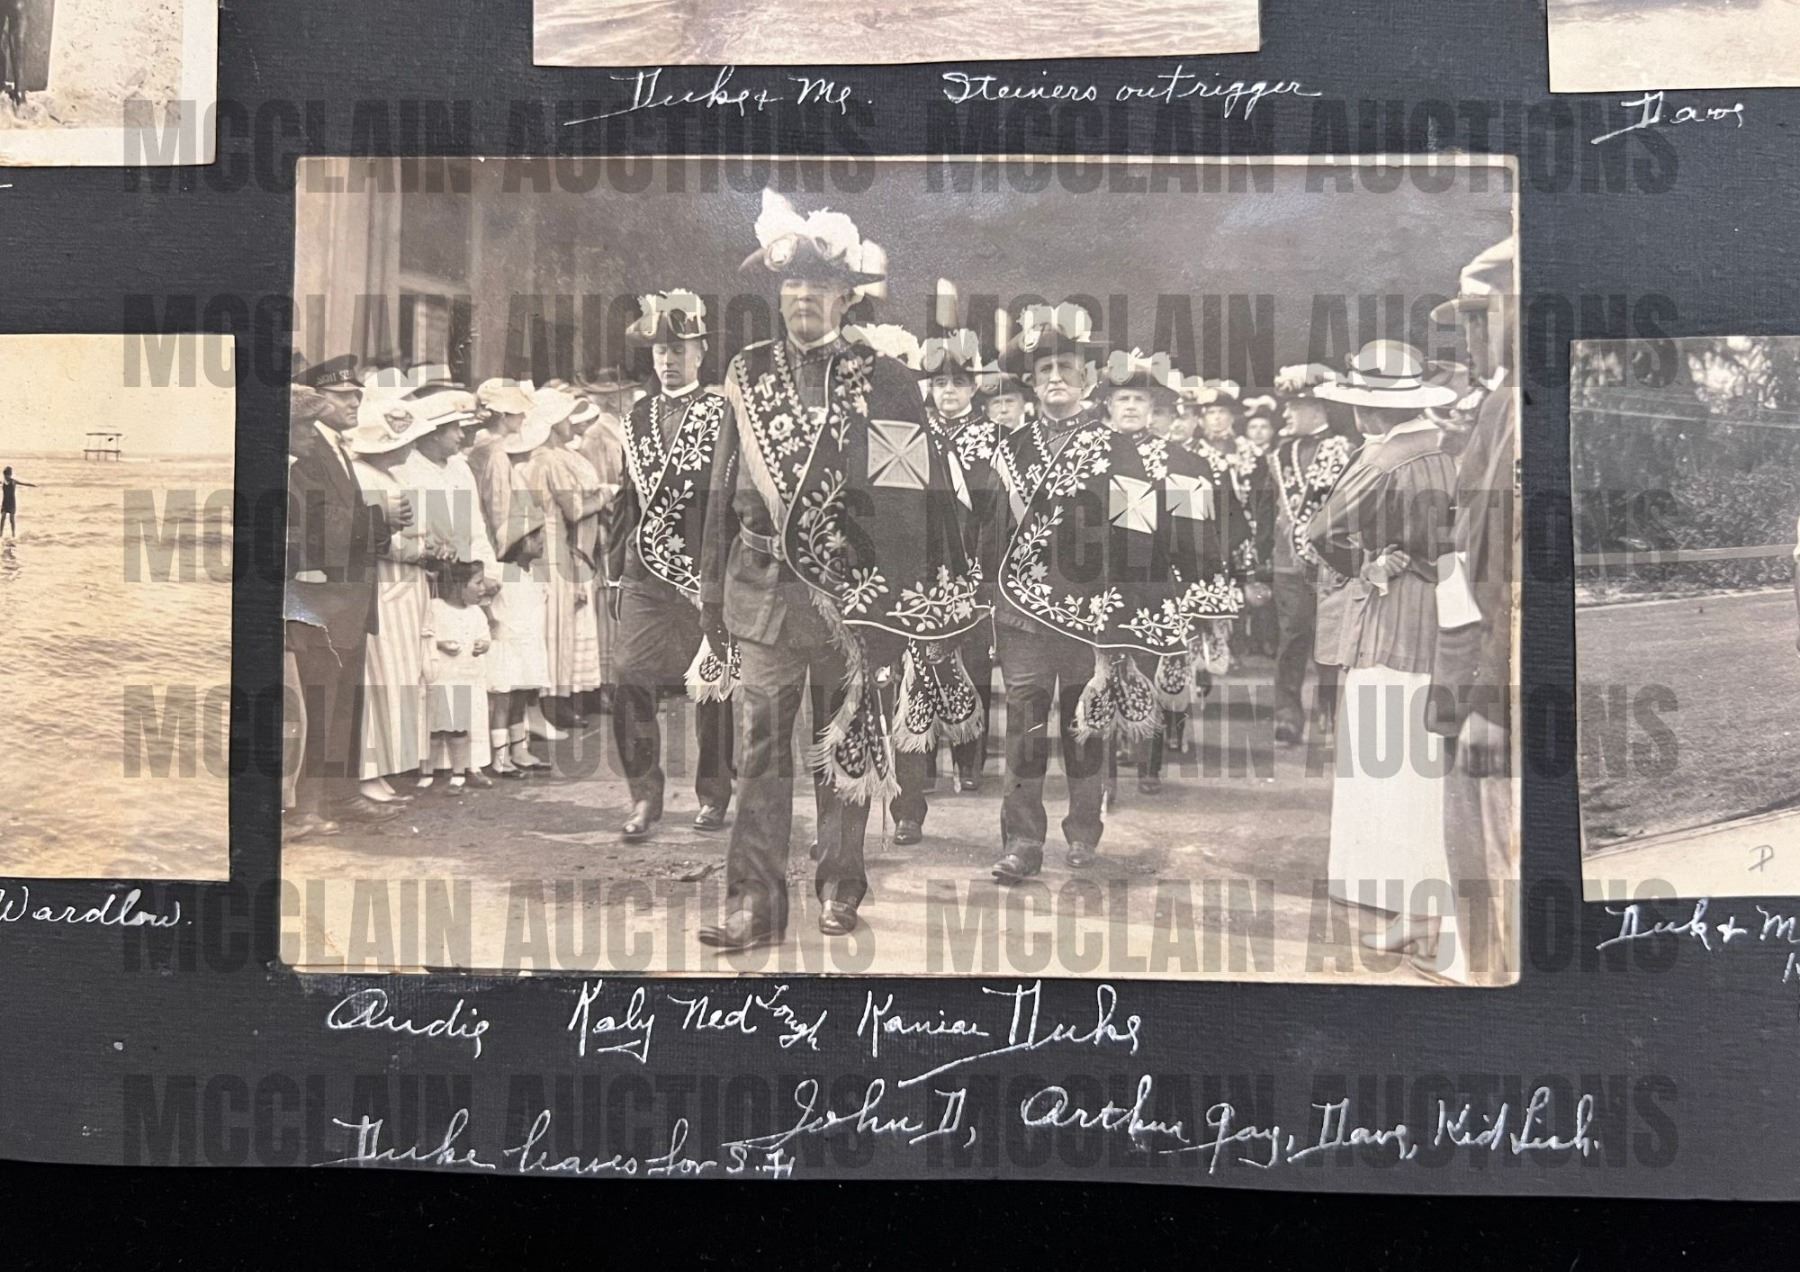 Duke & Me. Steiners outrigger
Dave
Wardlow.
Duke & M
Audie Kaly Ned Kaniae Duke
John D, Arthur Gay, Dave, Kid Lish.
Duke leaves for S.F.
D
MCCLAIN AUCTIONS MCCLAIN AUCTIONS
MCCLAIN AUCTIONS MCCLAIN AUCTIONS
MCCLAIN AUCTIONS MCCLAIN AUCTIONS
MCCLAIN AUCTIONS MCCLAIN AUCTIONS
MCCLAIN AUCTIONS MCCLAIN AUCTIONS
MCCLAIN AUCTIONS MCCLAIN AUCTIONS